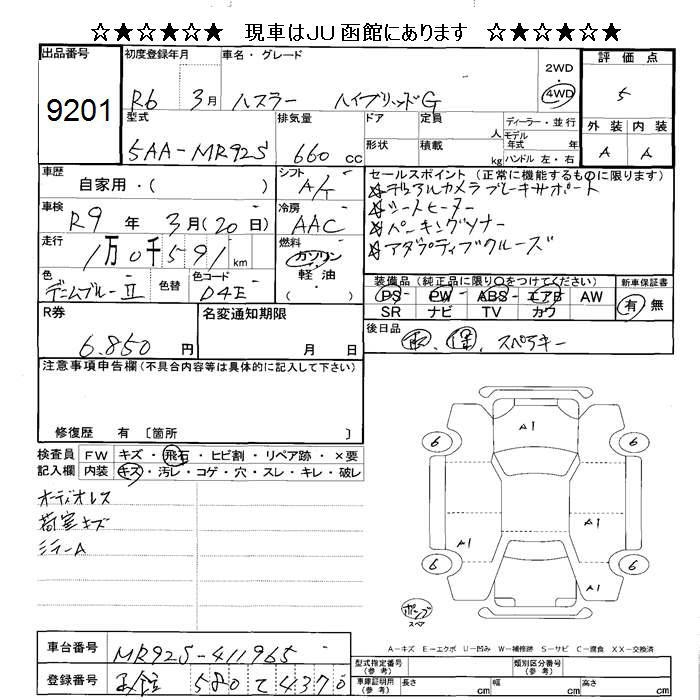 ☆★☆★☆★ 現車はJU函館にあります ☆★☆★☆★
出品番号 初度登録年月 車名・グレード 2WD・4WD 評価点
9201 R6 3月 ハスラー ハイブリッドG 5
型式 排気量 ドア 定員 人 ディーラー・並行 外装 内装
5AA-MR92S 660 cc 形状 積載 kg モデル年式 年 ハンドル 左・右 A A
車歴 シフト セールスポイント (正常に機能するものに限ります)
自家用・( ) A/t ☆デュアルカメラブレーキサポート
車検 冷房 ☆シートヒーター
R9年 3月(20日) AAC ☆パーキングソナー
走行 燃料 ☆アダプティブクルーズ
1万0千591km ガソリン・軽油・( )
色 色替 色コード 装備品 (純正品に限り○をつけてください) 新車保証書
デニムブルーII D4E PS・PW・ABS・エアB AW 有 無
SR ナビ TV カワ
R券 名変通知期限 後日品
6.850円 月 日 取、保、スペアキー
注意事項申告欄(不具合内容等は具体的に記入して下さい)
修復歴 有 〔箇所 〕
検査員記入欄 FW キズ・飛石・ヒビ割・リペア跡・×要
内装 キズ・汚レ・コゲ・穴・スレ・キレ・破レ
オーディオレス
荷室キズ
ミラーA
A1
6 6
A1 A1
6 6
A1
ポンプ
スペア
A-キズ E-エクボ U-凹み W-補修跡 S-サビ C-腐食 XX-交換済
車台番号 MR92S-411965 型式指定番号(参考) 類別区分番号(参考)
登録番号 函館 580 て 4370 車庫証明用(参考) 長さ cm 幅 cm 高さ cm